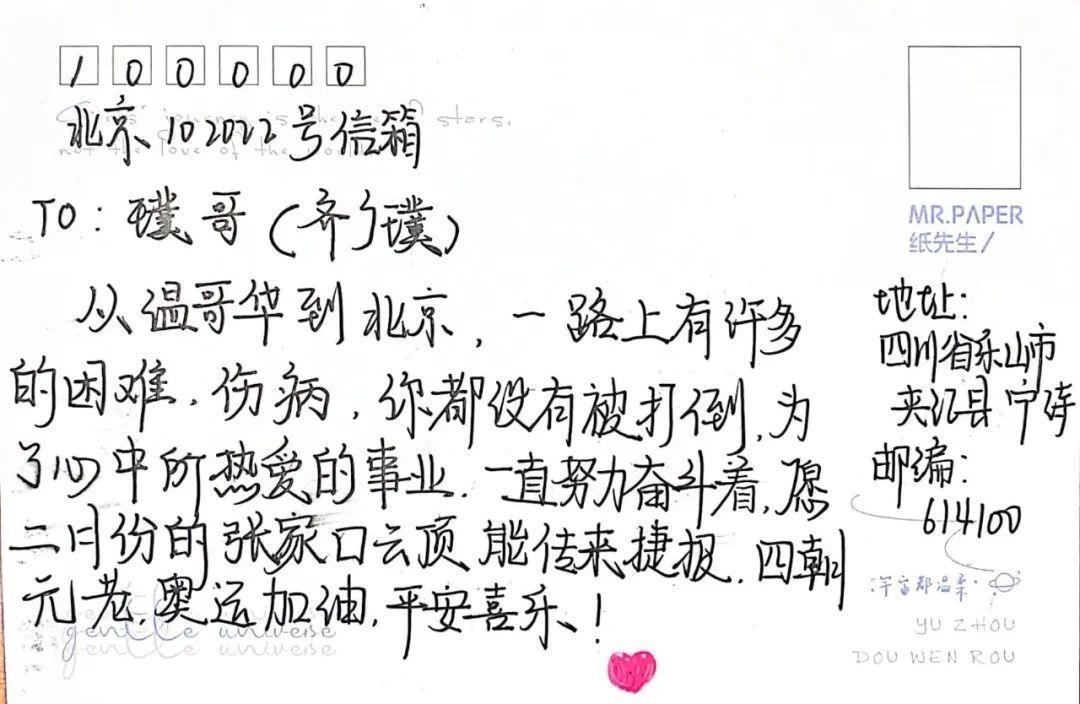 100000
北京102022号信箱
TO：璞哥（齐广璞）
从温哥华到北京，一路上有许多
的困难，伤病，你都没有被打倒，为
了心中所热爱的事业，一直努力奋斗着，愿
二月份的张家口云顶能传来捷报，四朝
元老，奥运加油，平安喜乐！
gentle universe
gentle universe
MR.PAPER
纸先生/
地址：
四川省乐山市
夹江县
邮编：
614100
宇宙都温柔
YU ZHOU
DOU WEN ROU